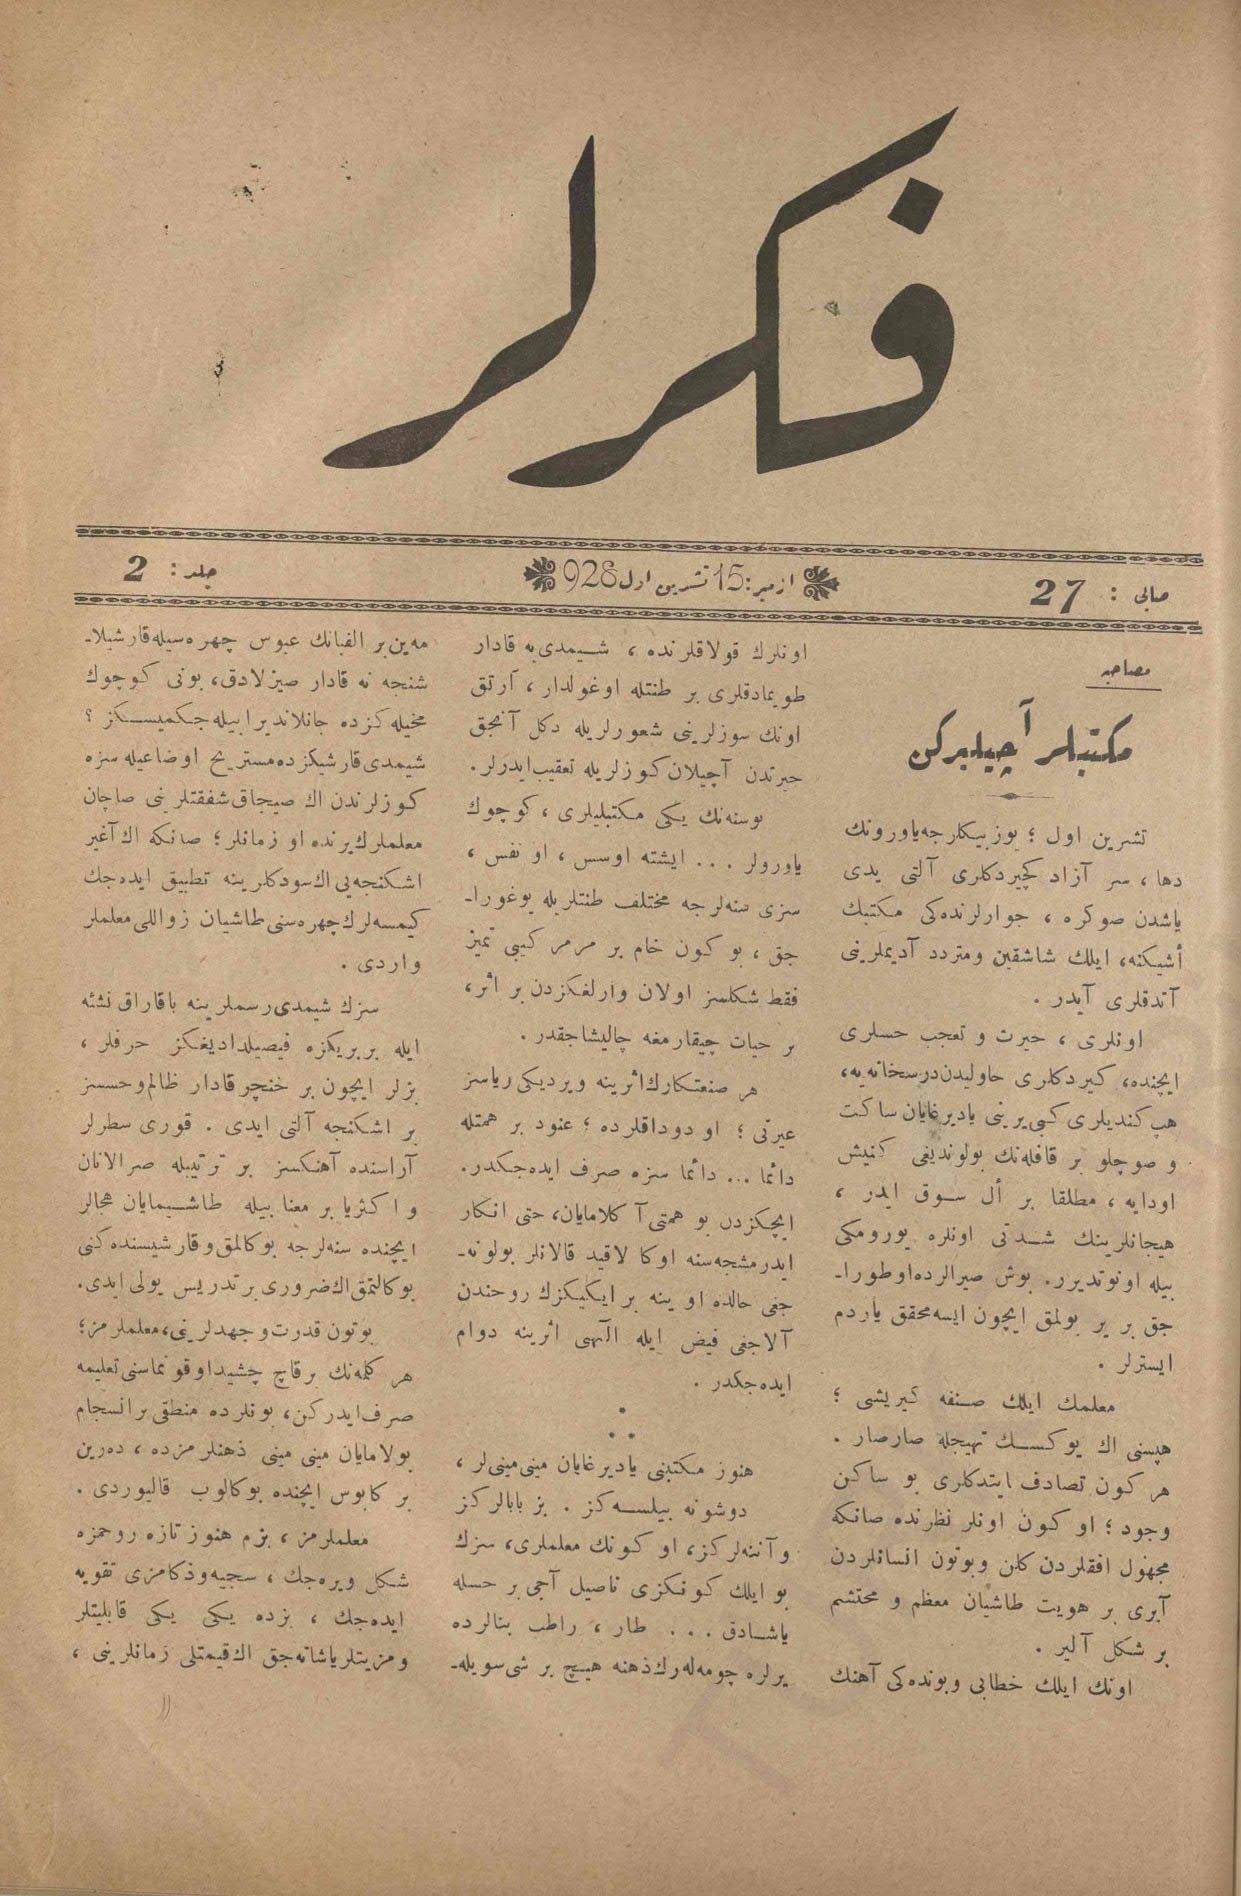 فكرلر
صالی : 27
ازمیر: 15 تشرین اول 928
جلد : 2
مصاحبه
مكتبلر آچیلیركن
تشرین اول ؛ یوز بیكلرجه یاورونك
دها ، سر آزاد كچیردكلری آلتی یدی
یاشدن صوكره ، جوارلرنده‌كی مكتبك
أشیكنه، ایلك شاشقین ومتردد آدیملرینی
آتدقلری آیدر .
اونلری ، حیرت و تعجب حسلری
ایچنده، كیردكلری حاولیدن‌درسخانه‌یه،
هپ كندیلری كبی یرینی یادیرغایان ساكت
و صوچلو بر قافله‌نك بولوندیغی كنیش
اودایه ، مطلقا بر أل سوق ایدر ،
هیجانلرینك شدتی اونلره یورومكی
بیله اونوتدیرر. بوش صیرالرده‌اوطورا-
جق بر یر بولمق ایچون ایسه‌محقق یاردم
ایسترلر .
معلمك ایلك صنفه كیریشی ؛
هپسنی اك یوكسك تهیجله صارصار .
هر كون تصادف ایتدكلری بو ساكن
وجود ؛ او كون اونلر نظرنده صانكه
مجهول افقلردن كلن وبوتون انسانلردن
آیری بر هویت طاشیان معظم و محتشم
بر شكل آلیر .
اونك ایلك خطابی وبونده‌كی آهنك
اونلرك قولاقلرنده ، شیمدی‌یه قادار
طویمادقلری بر طنتله اوغولدار ، آرتق
اونك سوزلرینی شعورلریله دكل آنجق
حیرتدن آچیلان كوزلریله تعقیب‌ایدرلر.
بوسنه‌نك یكی مكتبلیلری ، كوچوك
یاورولر ... ایشته اوسس ، او نفس ،
سزی سنه‌لرجه مختلف طنتلریله یوغورا-
جق ، بو كون خام بر مرمر كیبی تمیز
فقط شكلسز اولان وارلغكزدن بر اثر،
بر حیات چیقارمغه چالیشاجقدر.
هر صنعتكارك‌اثرینه ویردیكی ریاسز
غیرتی ؛ او دوداقلرده ؛ عنود بر همتله
دائما ... دائما سزه صرف ایده‌جكدر.
ایچكزدن بو همتی آكلامایان، حتی انكار
ایدرمشجه‌سنه اوكا لاقید قالانلر بولونه-
جغی حالده او ینه بر ایكیكزك روحندن
آلاجغی فیض ایله الٓهی اثرینه دوام
ایده‌جكدر .
هنوز مكتبنی یادیرغایان مینی‌مینی‌لر ،
دوشونه بیلسه‌كز . بز بابالركز
وآننه‌لركز، او كونك معلملری، سزك
بو ایلك كونكزی ناصیل آجی بر حسله
یاشادق ... طار ، راطب بنالرده
یرلره چومه‌له‌رك‌ذهنه هیچ بر شی‌سویله-
مه‌ین‌بر الفبانك عبوس چهره‌سیله‌قارشیلا-
شنجه نه قادار صیزلادق، بونی كوچوك
مخیله‌كزده جانلاندیرابیله‌جكمیسكز ؟
شیمدی قارشیكزده‌مستریح اوضاعیله سزه
كوزلرندن اك صیجاق‌شفقتلرینی صاچان
معلملرك‌یرنده او زمانلر ؛ صانكه اك‌آغیر
اشكنجه‌یی‌اك‌سودكلرینه تطبیق ایده‌جك
كیمسه‌لرك‌چهره‌سنی‌طاشیان زواللی‌معلملر
واردی .
سزك شیمدی‌رسملرینه باقاراق نشئه
ایله بربریكزه فیصیلدادیغكز حرفلر ،
بزلر ایچون بر خنجر قادار ظالم‌وحسسز
بر اشكنجه آلتی ایدی . قوری سطرلر
آراسنده آهنكسز بر ترتیبله صرالانان
و اكثریا بر معنا بیله طاشیمایان هجالر
ایچنده سنه‌لرجه بوكالمق‌وقارشیسنده‌كنی
بوكالتمق‌اك‌ضروری برتدریس یولی‌ایدی.
بوتون قدرت‌وجهدلرینی، معلملرمز؛
هر كلمه‌نك برقاچ چشیداوقونماسنی‌تعلیمه
صرف‌ایدركن، بونلرده منطقی‌برانسجام
بولامایان مینی مینی ذهنلرمزده ، ده‌رین
بر كابوس ایچنده بوكالوب قالیوردی .
معلملرمز ، بزم هنوز تازه روحمزه
شكل ویره‌جك ، سجیه‌وذكامزی تقویه
ایده‌جك ، بزده یكی یكی قابلیتلر
ومزیتلریاشاته‌جق اك‌قیمتلی زمانلرینی ،